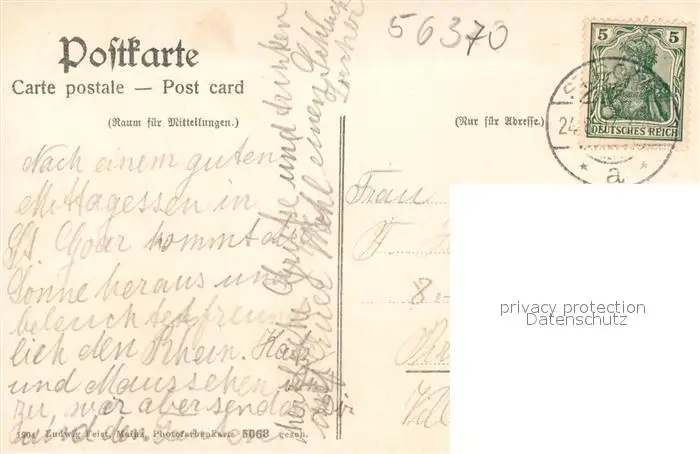 56370
Postkarte
Carte postale — Post card
(Raum für Mitteilungen.)
(Nur für Adresse.)
5 5
DEUTSCHES REICH
24
a
Nach einem guten
Mittagessen in
St. Goar kommt die
Sonne heraus und
beleuchtet freund
lich den Rhein. Katz
und Maus sehen
zu, wir aber senden Dir
und den
herzliche Grüsse und trinken
auf Euer Wohl einen Schluck
Lorcher
Frau
8
privacy protection
Datenschutz
1904 Ludwig Feist, Mainz, Photofarbenkarte 5068 gesch.